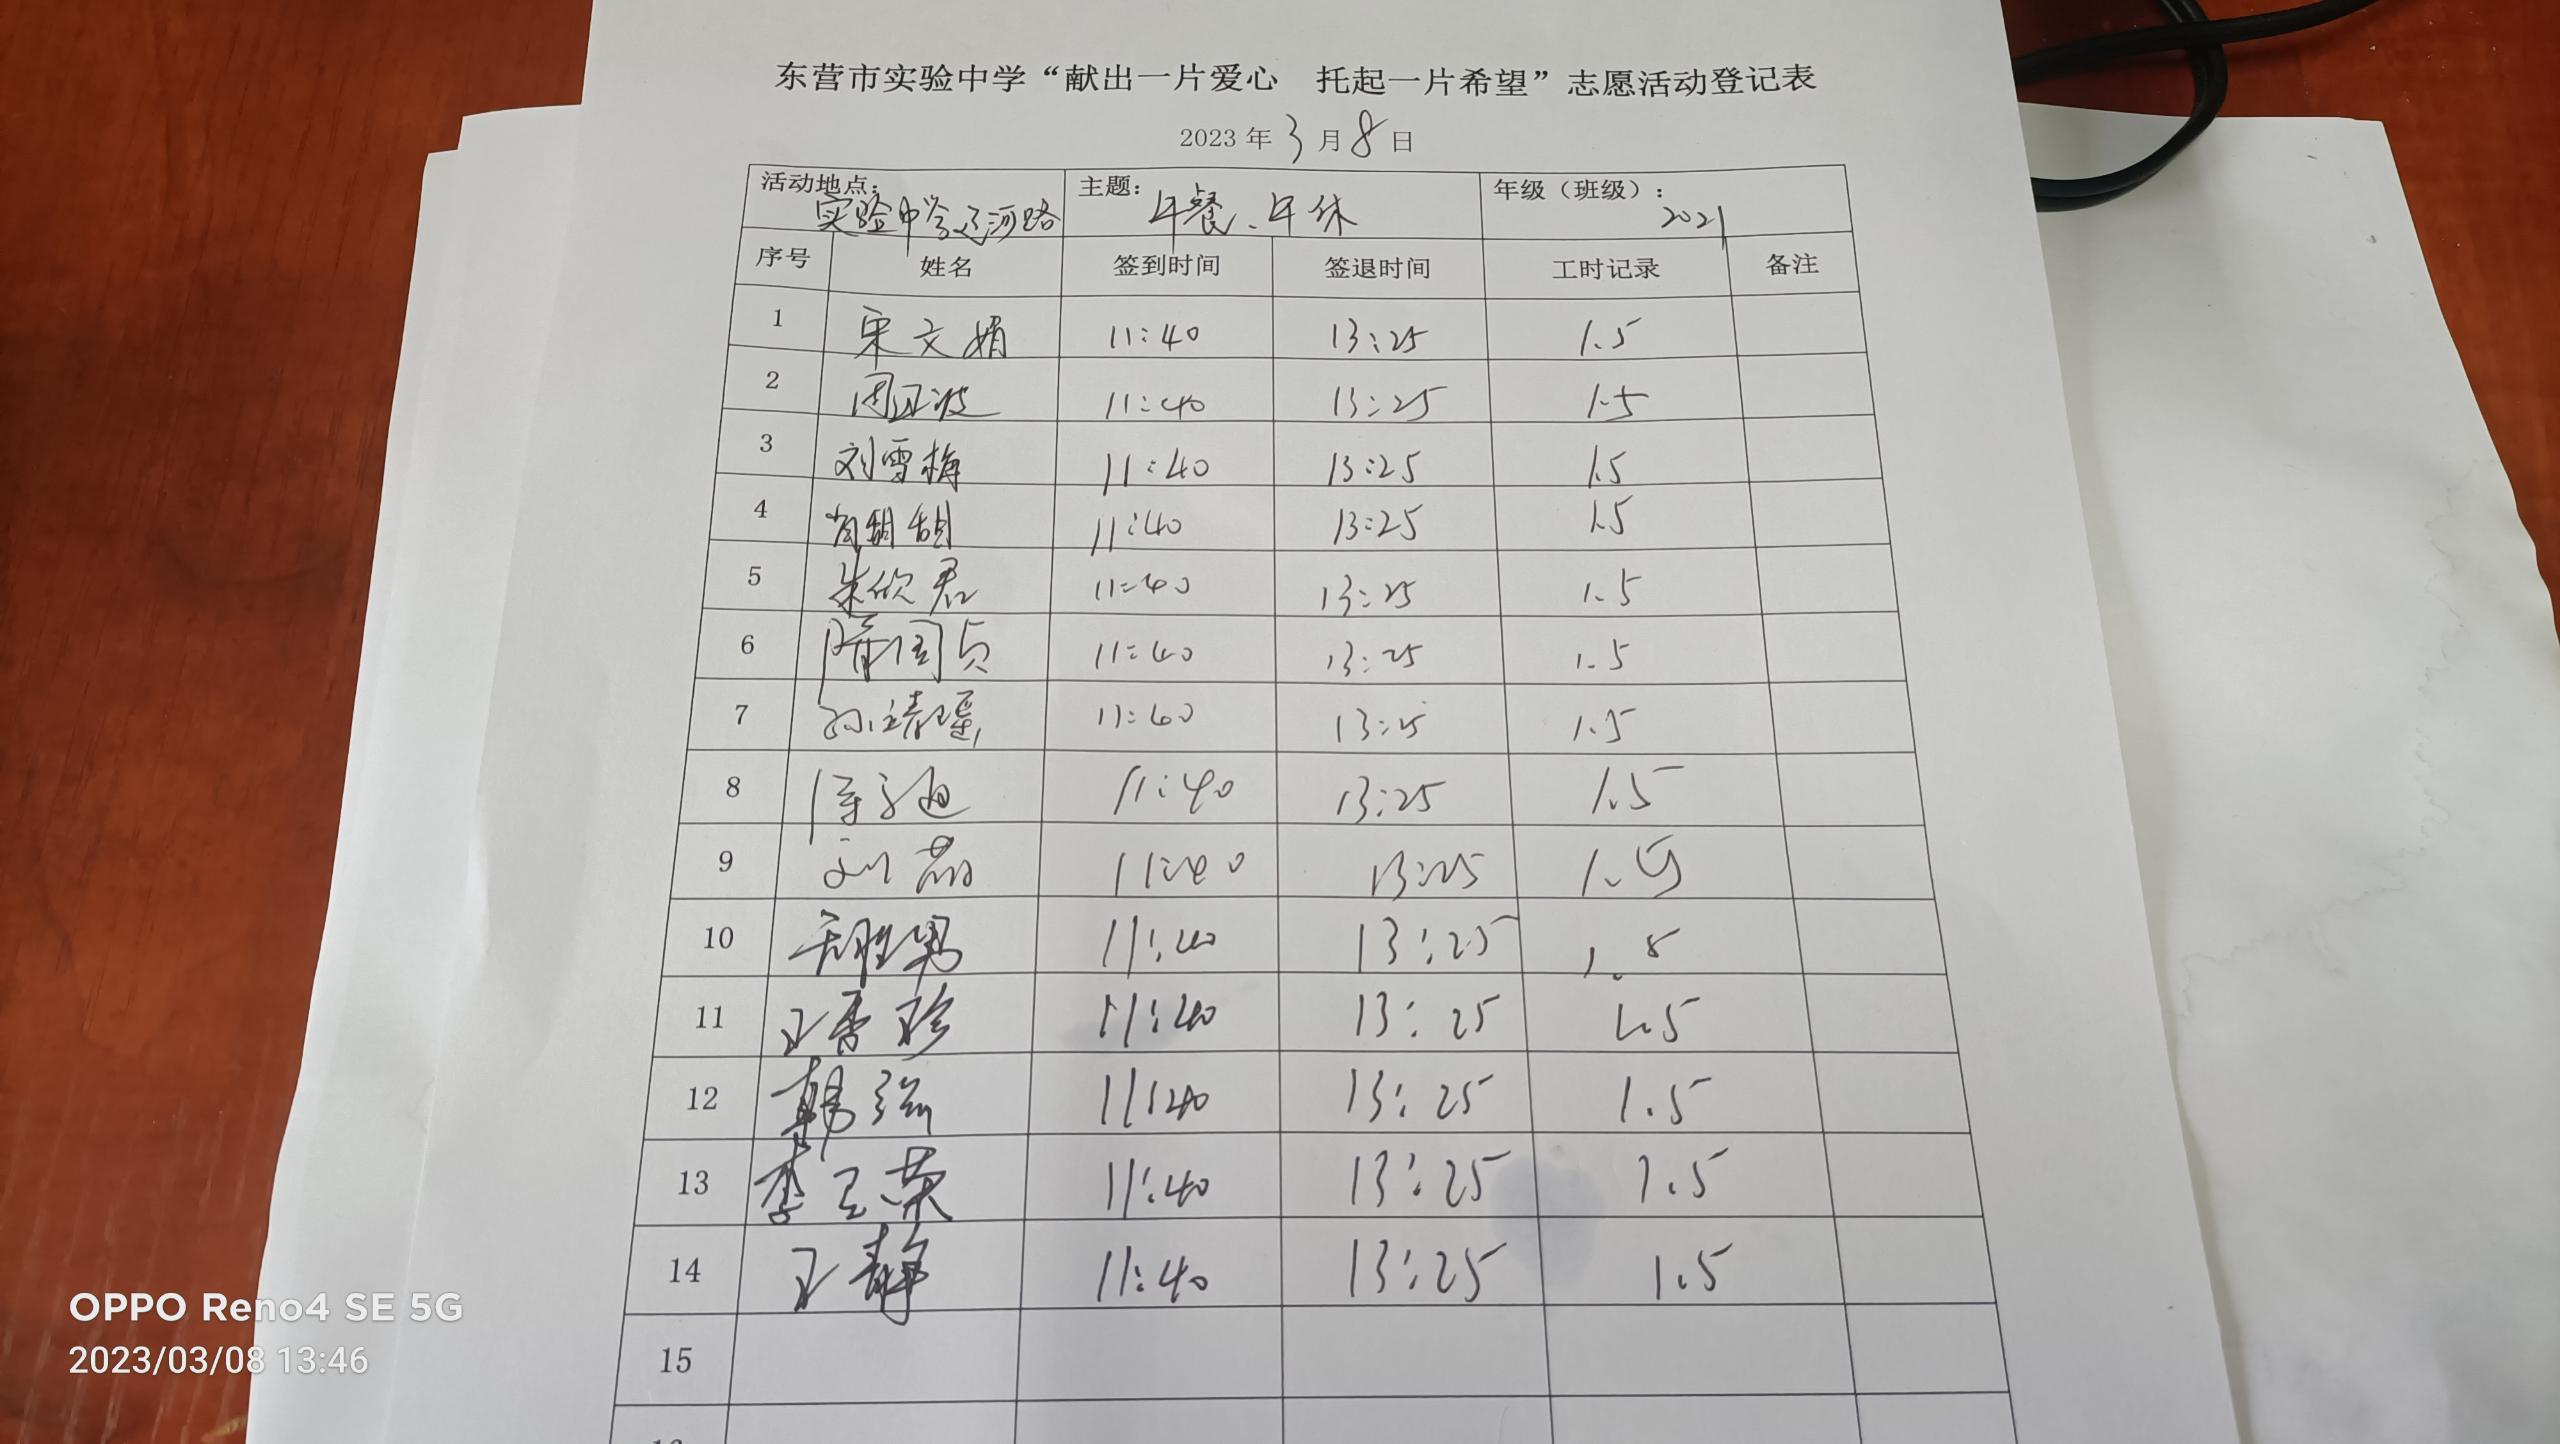 东营市实验中学“献出一片爱心 托起一片希望”志愿活动登记表
2023 年 3 月 8 日
活动地点： 实验中学辽河路 主题： 午餐、午休 年级（班级）： 2021
序号 姓名 签到时间 签退时间 工时记录 备注
1 宋文娟 11:40 13:25 1.5
2 周亚波 11:40 13:25 1.5
3 刘雪梅 11:40 13:25 1.5
4 11:40 13:25 1.5
5 朱欣君 11:40 13:25 1.5
6 隋国贞 11:40 13:25 1.5
7 孙靖瑶 11:40 13:25 1.5
8 11:40 13:25 1.5
9 刘 11:40 13:25 1.5
10 胜男 11:40 13:25 1.5
11 王香珍 11:40 13:25 1.5
12 韩 11:40 13:25 1.5
13 李玉荣 11:40 13:25 1.5
14 王静 11:40 13:25 1.5
15
OPPO Reno4 SE 5G
2023/03/08 13:46